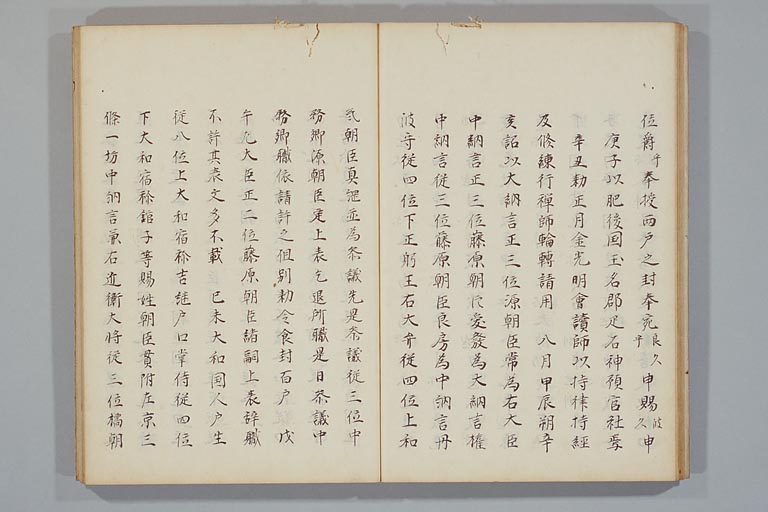 位爵并奉授両戸之封奉宛良久申賜波久申
庚子以肥後国玉名郡疋石神預官社焉
辛丑勅正月金光明會讀師以持律持経
及修練行禅師輪轉請用　八月甲辰朔辛
亥詔以大納言正三位源朝臣常為右大臣
中納言正三位藤原朝臣愛發為大納言権
中納言従三位藤原朝臣良房為中納言丹
波守従四位下正躬王右大弁従四位上和
気朝臣真綱並為参議先是参議従三位中
務卿源朝臣定上表乞退所職是日参議中
務卿職依請許之但別勅令食封百戸　戊
午九大臣正二位藤原朝臣緒嗣上表辞職
不許其表文多不載　己未大和国人戸生
従八位上大和宿祢吉継戸口掌侍従四位
下大和宿祢舘子等賜姓朝臣貫附左京三
條一坊中納言兼右近衛大将従三位橘朝